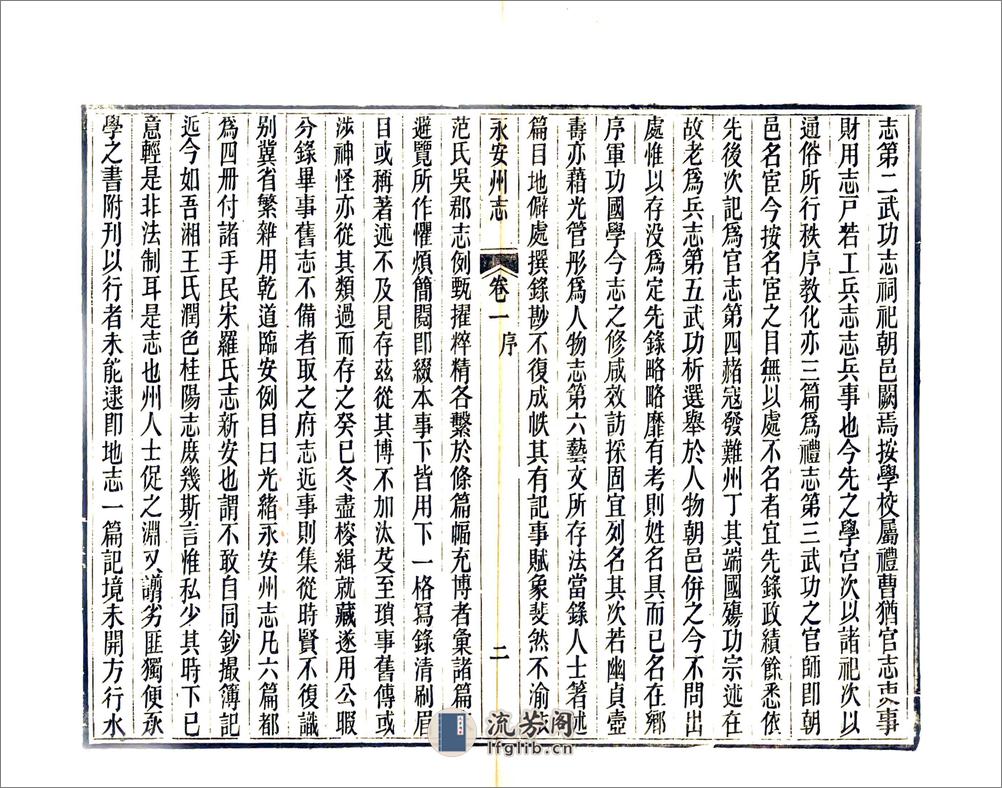 志第二武功志祠祀朝邑闕焉按學校屬禮曹猶官志吏事
財用志戸若工兵志志兵事也今先之學宮次以諸祀次以
通俗所行秩序教化亦三篇爲禮志第三武功之官師即朝
邑名宦今按名宦之目無以處不名者宜先錄政績餘悉依
先後次記爲官志第四赭寇發難州丁其端國殤功宗述在
故老爲兵志第五武功析選舉於人物朝邑併之今不問出
處惟以存没爲定先錄略略靡有考則姓名具而已名在鄉
序軍功國學今志之修咸效訪採固宜列名其次若幽貞壼
壽亦藉光管彤爲人物志第六藝文所存法當錄人士著述
篇目地僻處撰錄尠不復成帙其有記事賦象斐然不渝
永安州志 卷一 序 二
范氏吳郡志例甄擢粹精各繫於條篇幅充博者彙諸篇
避覽所作懼煩簡閱卽綴本事下皆用下一格寫錄清刷眉
目或稱著述不及見存茲從其博不加汰芟至瑣事舊傳或
涉神怪亦從其類過而存之癸巳冬盡梭緝就藏遂用公暇
分錄畢事舊志不備者取之府志近事則集從時賢不復識
別冀省繁雜用乾道臨安例目曰光緒永安州志凡六篇都
爲四册付諸手民宋羅氏志新安也謂不敢自同鈔撮簿記
近今如吾湘王氏潤色桂陽志庶幾斯言惟私少其時下已
意輕是非法制耳是志也州人士促之淵又譾劣匪獨便永
學之書附刊以行者未能逮卽地志一篇記境未開方行水
流芳阁
lfglib.cn